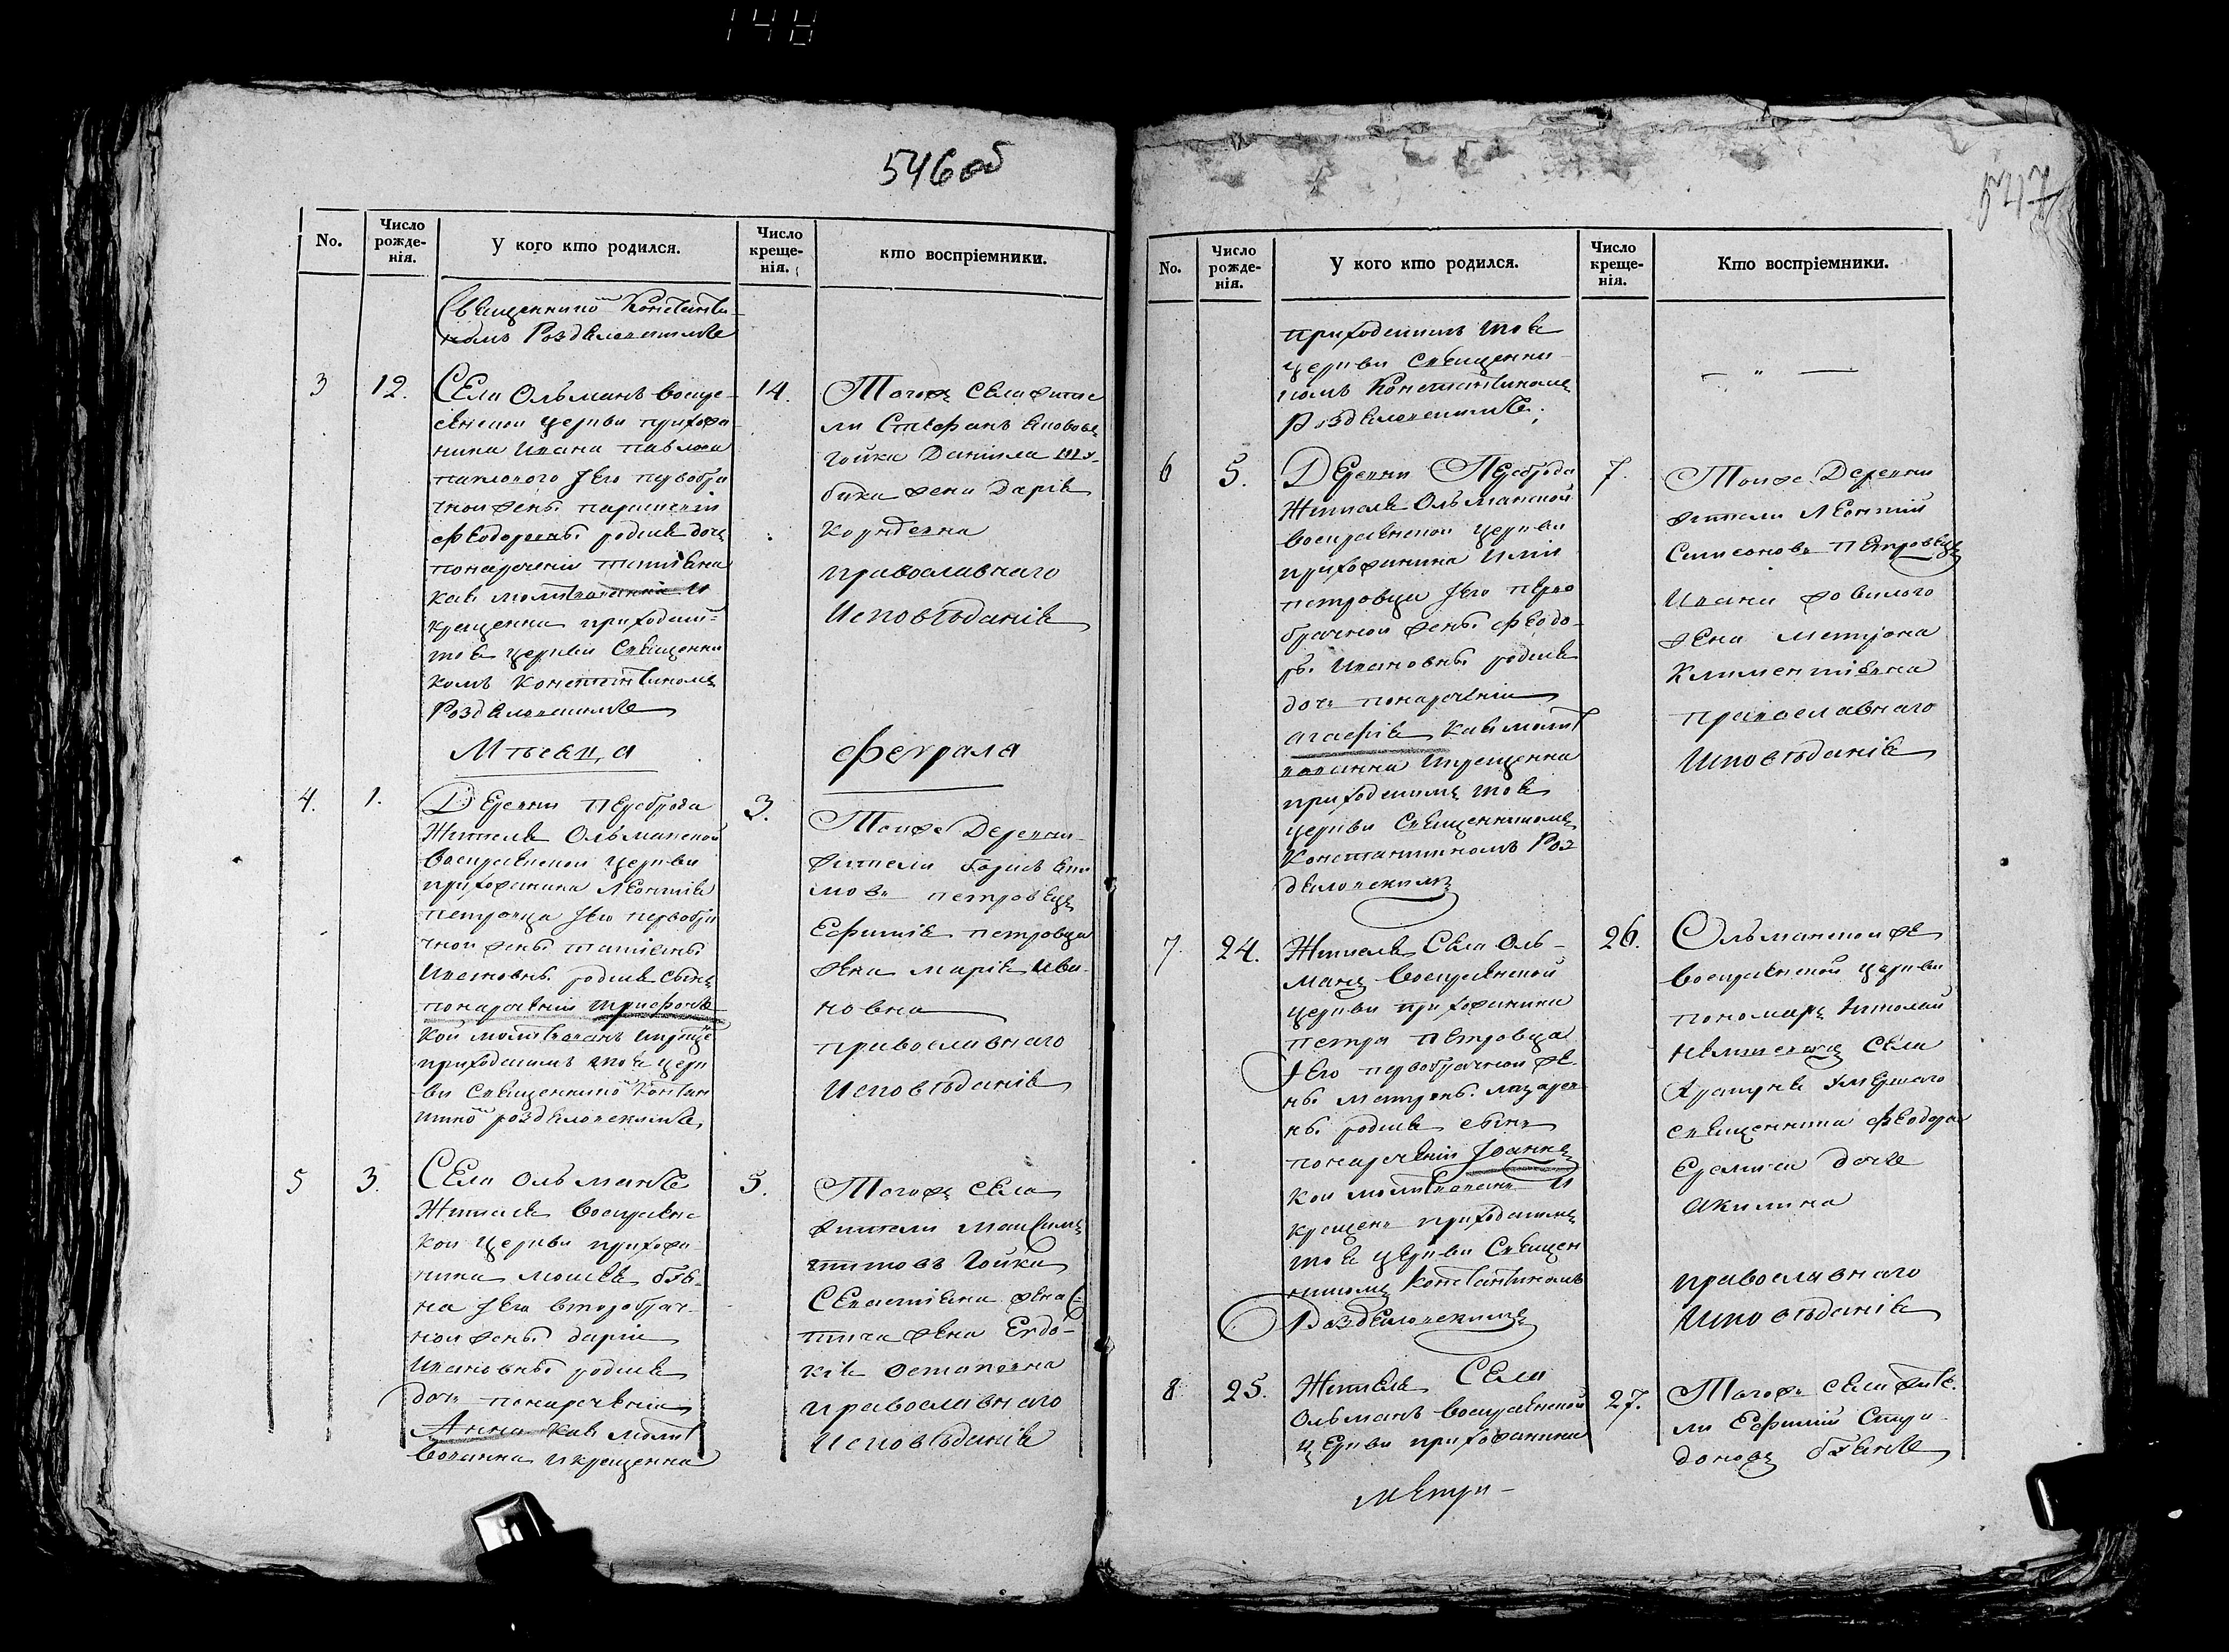 148
546об
No.
Число рожде-нія.
У кого кто родился.
Число креще-нія.
кто воспріемники.
Священнико Константи-
номъ Роздяловскимъ
3
12.
Села Ольманъ воскре-
сенской Церкви прихожа
нина Ивана Павлова
его первобра
чной жены
Феодоровны родися дочь
понаречении Татіяна
кая молитвованна и
крещенна приходски-
тоя церкви Священни
комъ Константиномъ
Роздяловскимъ
14.
Тогожъ Села жите
ли Стефанъ
Гойка Данила
жена Дарія
православнаго
Исповѣданія
Мѣсяца
Феврала
4.
1.
Деревни Переброда
Жителя Ольманской
Воскресенской Церкви
прихожанина Леонтія
Петровца его первобра
чной жены Татіяны
родися сынъ
понареченіи Трифонъ
кои молитвованъ икреще
приходскимъ тоя Церк
ви Священнико Констан
тино Роздяловскимъ
3.
Тоижъ Деревни
жители Борисъ
мовъ Петровецъ
Ефимія Петровца
жена Марія Ива-
новна
православнаго
Исповѣданія
5
3.
Села Ольманъ
Жителя Воскресенс
кои Церкви прихожа
нина Моисея
на его второбрач-
ной жены Даріи
Ивановны родися
дочь понареченіи
Анна кая молит
вованна икрещенна
5.
Тогожъ Села
жители Максимъ
Титовъ Гойка
жена
Евдо-
кія Остаповна
православнаго
Исповѣданія
547
No.
Число рожде-нія.
У кого кто родился.
Число креще-нія.
Кто воспріемники.
приходскимъ тоя
церкви Священни-
комъ Константиномъ
Роздяловскимъ.
— " —
6
5.
Деревни Переброда
Жителя Ольманской
Воскресенской Церкви
прихожанина Иліи
Петровца его перво
брачной жены Феодо-
ры Ивановны родися
дочь понареченіи
Агафія кая молит
вованна икрещенна
приходскимъ тоя
церкви Священникомъ
Константиномъ Роз
дяловскимъ
7.
Тоижъ Деревни
жители Леонтій
Симеоновъ Петровецъ
Ивана
жена Матрона
Климентіевна
православнаго
Исповѣданія
7
24.
Жителя Села Оль-
манъ Воскресенской
Церкви прихожанина
Петра Петровца
его первобрачной же-
ны Матроны Лазарев
ны родися сынъ
понареченіи Іоаннъ
кои молитвованъ и
крещенъ приходскимъ
тоя Церкви Священ
никомъ Константиномъ
Роздяловскимъ
26.
Ольманской же
Воскресенской Церкви
пономарь Николай
Села
умершаго
священника Феодора
дочь
Акилина
православнаго
Исповѣданія
8
25.
Жителя Села
Ольманъ Воскресенской
Церкви прихожанина
27.
Тогожъ села жите-
ли Ефимій Спри-
доновъ
Метри-